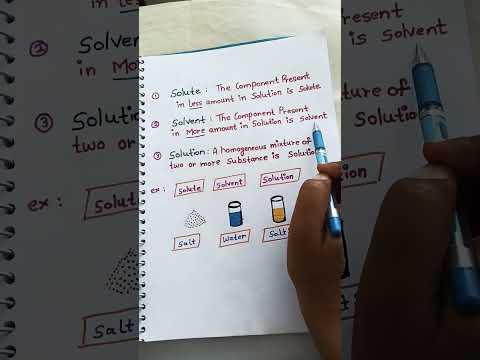 ① Solute : The Component Present
in Less amount in Solution is Solute
② Solvent : The Component Present
in More amount in Solution is Solvent
③ Solution : A homogeneous mixture of
two or more Substance is Solution
ex : Solute Solvent Solution
Salt Water Salt